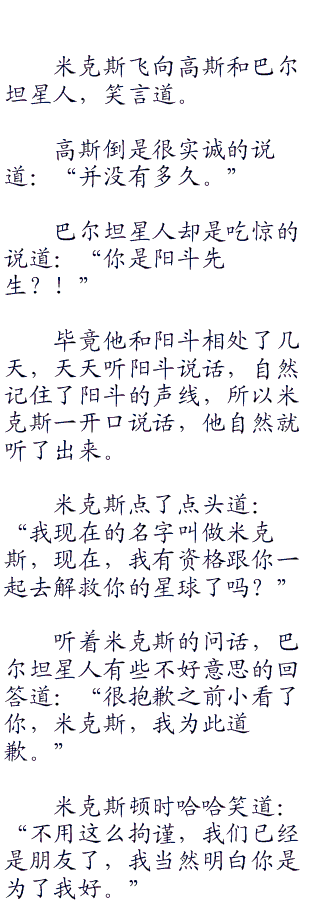 米克斯飞向高斯和巴尔
坦星人，笑言道。
高斯倒是很实诚的说
道：“并没有多久。”
巴尔坦星人却是吃惊的
说道：“你是阳斗先
生？！”
毕竟他和阳斗相处了几
天，天天听阳斗说话，自然
记住了阳斗的声线，所以米
克斯一开口说话，他自然就
听了出来。
米克斯点了点头道：
“我现在的名字叫做米克
斯，现在，我有资格跟你一
起去解救你的星球了吗？”
听着米克斯的问话，巴
尔坦星人有些不好意思的回
答道：“很抱歉之前小看了
你，米克斯，我为此道
歉。”
米克斯顿时哈哈笑道：
“不用这么拘谨，我们已经
是朋友了，我当然明白你是
为了我好。”